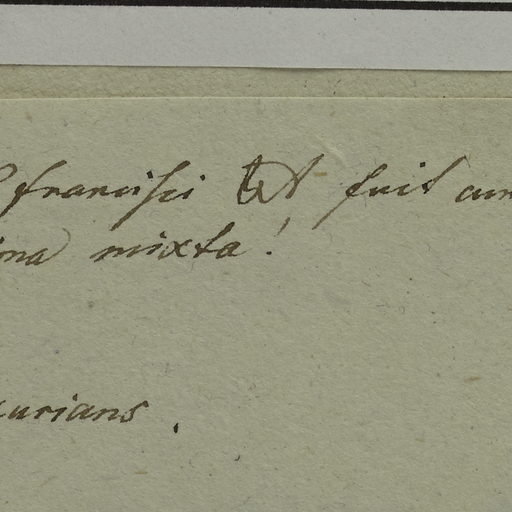 francisci et fuit cum
ina mixta!
urians.